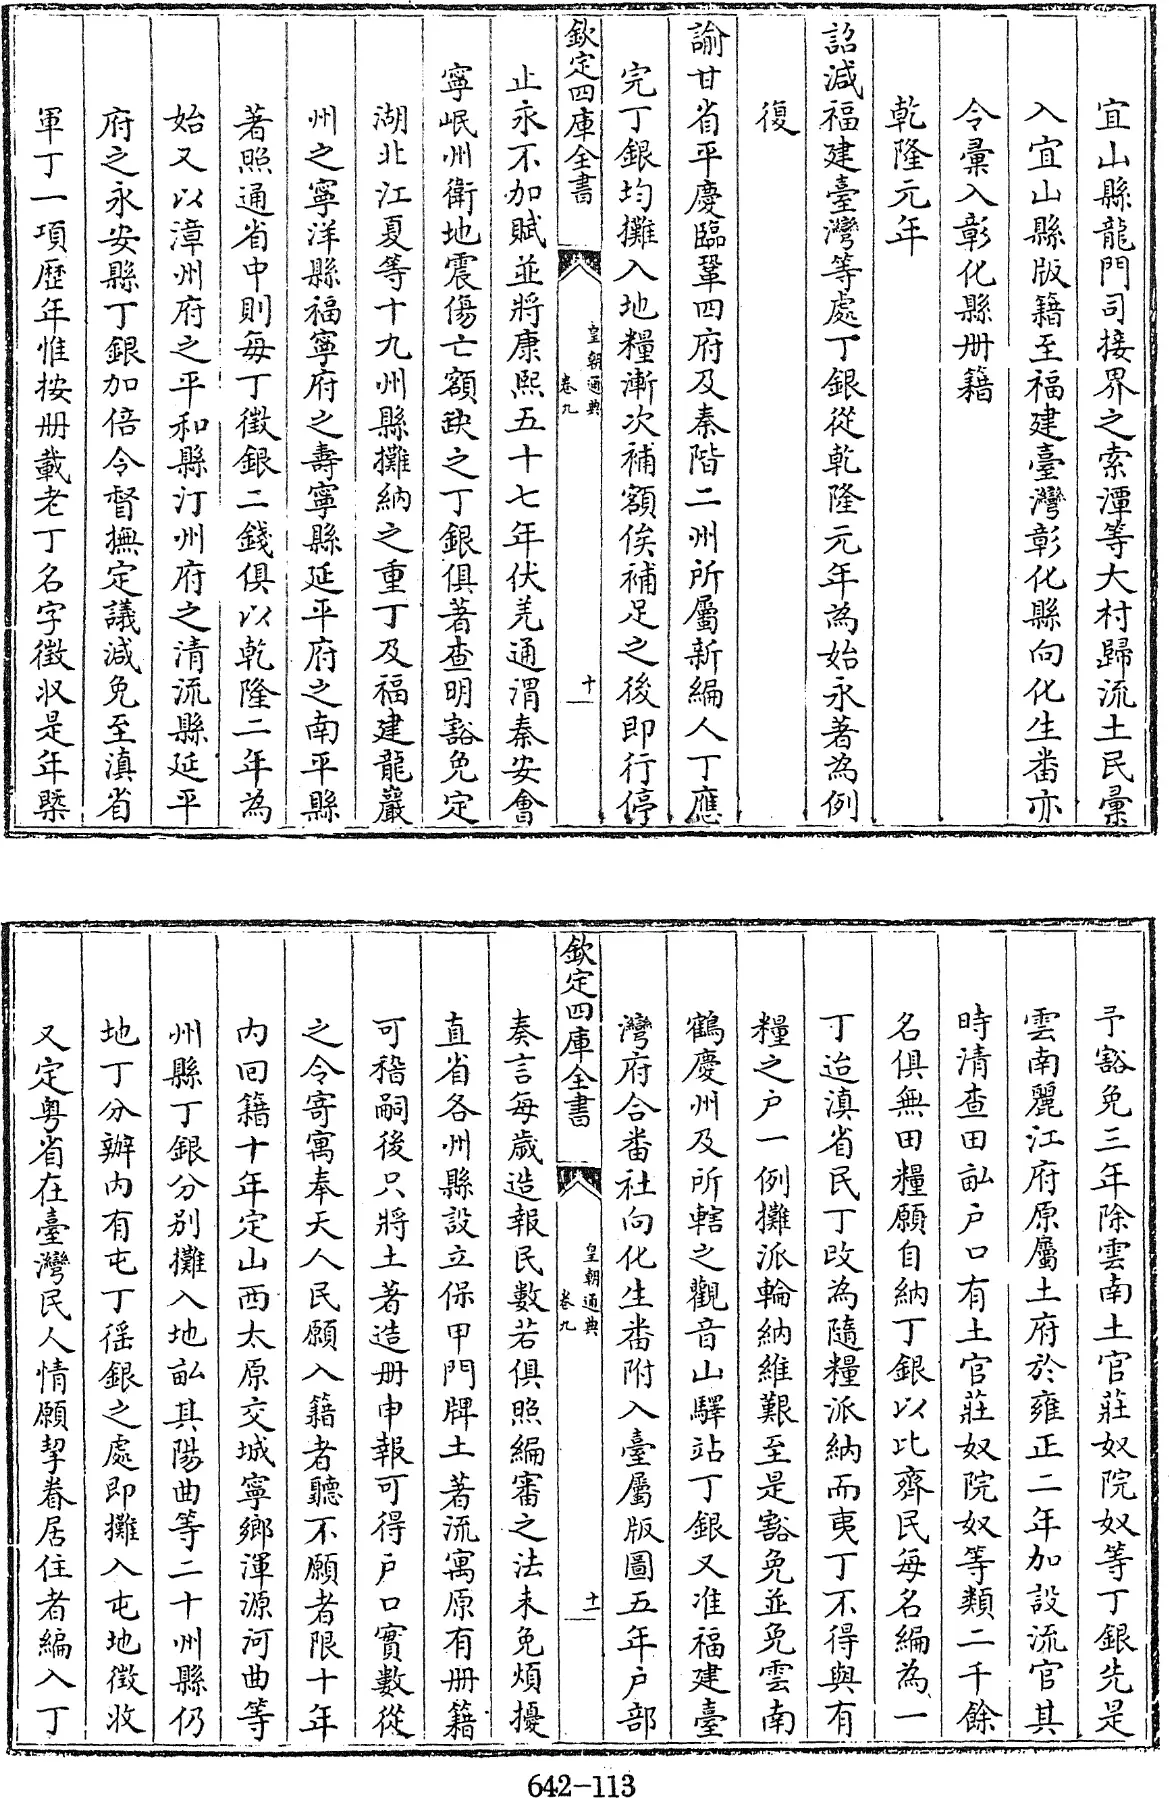 宜山縣龍門司接界之索潭等大村歸流土民彚
入宜山縣版籍至福建臺灣彰化縣向化生番亦
令彚入彰化縣册籍
乾隆元年
詔減福建臺灣等處丁銀從乾隆元年為始永著為例
復
諭甘省平慶臨鞏四府及秦階二州所屬新編人丁應
完丁銀均攤入地糧漸次補額俟補足之後即行停
欽定四庫全書
皇朝通典
卷九
十
止永不加賦並將康熙五十七年伏羌通渭秦安會
寧岷州衛地震傷亡額缺之丁銀俱著查明豁免定
湖北江夏等十九州縣攤納之重丁及福建龍巖
州之寧洋縣福寧府之壽寧縣延平府之南平縣
著照通省中則每丁徵銀二錢俱以乾隆二年為
始又以漳州府之平和縣汀州府之清流縣延平
府之永安縣丁銀加倍令督撫定議減免至滇省
軍丁一項歷年惟按册載老丁名字徵収是年槩
予豁免三年除雲南土官莊奴院奴等丁銀先是
雲南麗江府原屬土府於雍正二年加設流官其
時清查田畆户口有土官莊奴院奴等類二千餘
名俱無田糧願自納丁銀以比齊民每名編為一
丁迨滇省民丁改為隨糧派納而夷丁不得與有
糧之户一例攤派輪納維艱至是豁免並免雲南
鶴慶州及所轄之觀音山驛站丁銀又准福建臺
灣府合番社向化生番附入臺屬版圖五年户部
欽定四庫全書
皇朝通典
卷九
十一
奏言每歲造報民數若俱照編審之法未免煩擾
直省各州縣設立保甲門牌土著流寓原有册籍
可稽嗣後只將土著造册申報可得户口實數從
之令寄寓奉天人民願入籍者聽不願者限十年
内回籍十年定山西太原交城寧鄉渾源河曲等
州縣丁銀分别攤入地畆其陽曲等二十州縣仍
地丁分辦内有屯丁徭銀之處即攤入屯地徵收
又定粤省在臺灣民人情願挈眷居住者編入丁
642-113